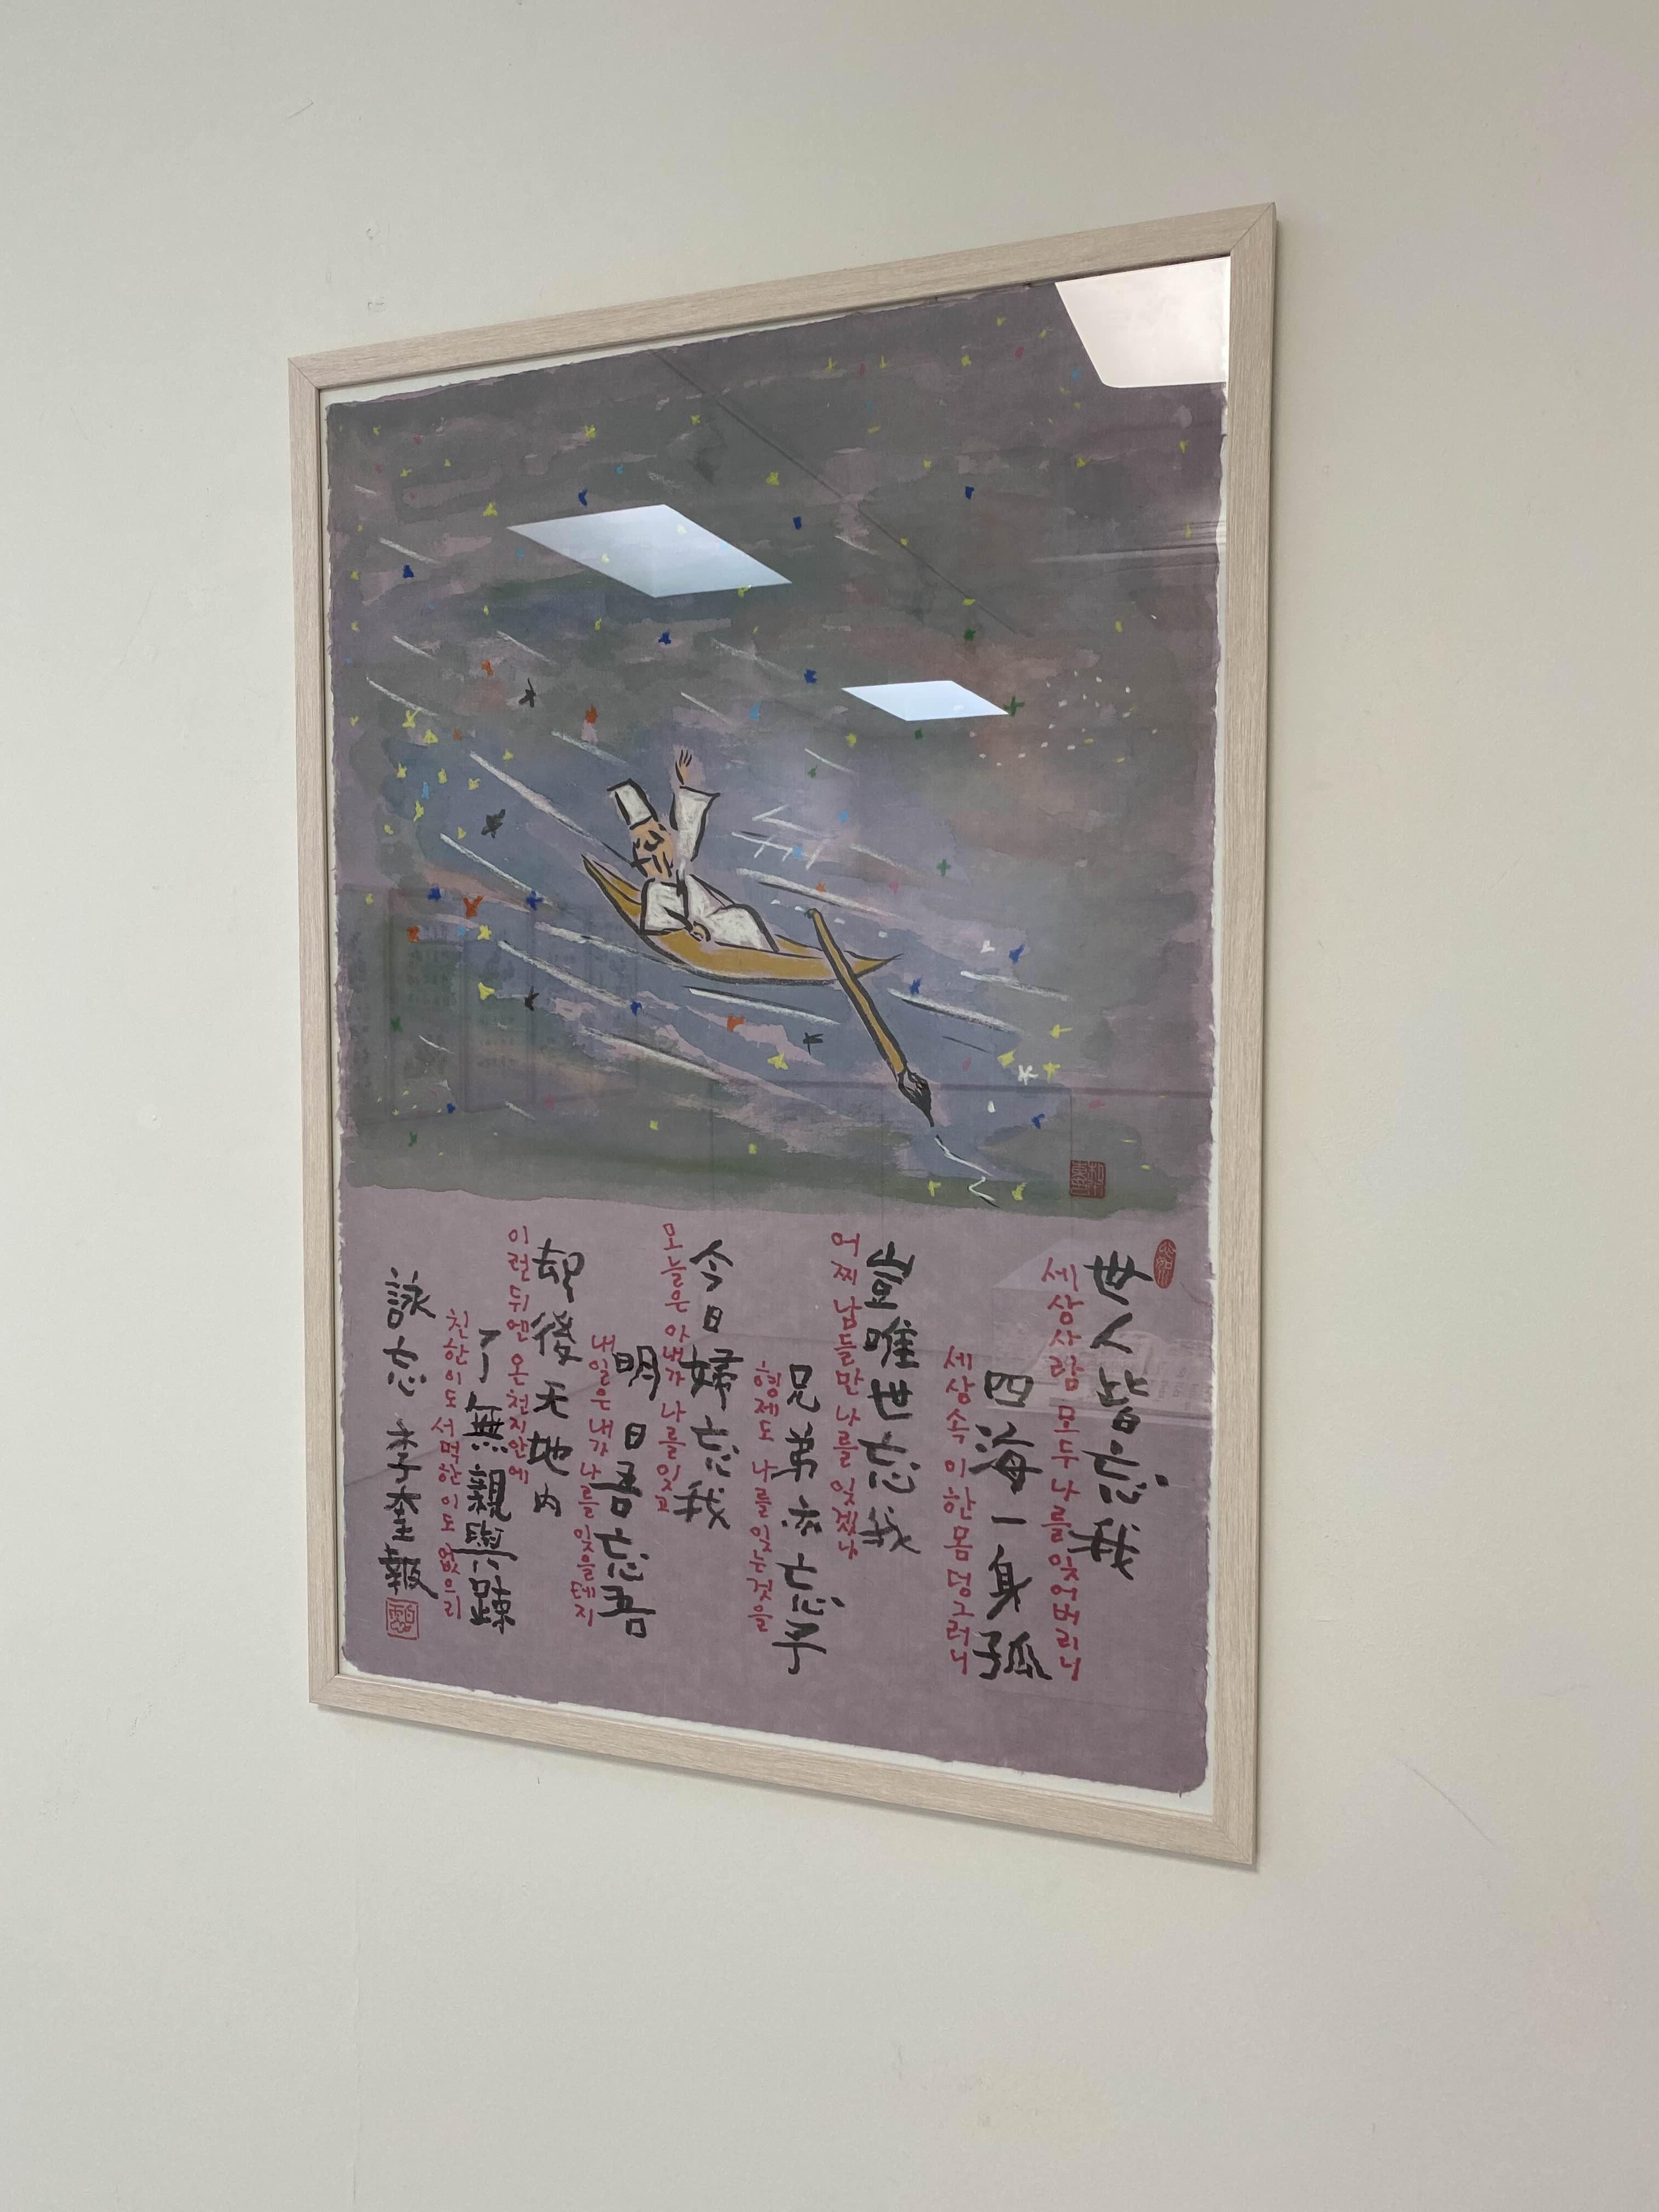 世人皆忘我
세상사람 모두 나를 잊어버리니
四海一身孤
세상 속 이 한 몸 덩그러니
豈唯世忘我
어찌 남들만 나를 잊겠나
兄弟亦忘予
형제도 나를 잊는것을
今日婦忘我
오늘은 아내가 나를 잊고
明日吾忘吾
내일은 내가 나를 잊을테지
却後天地內
이런 뒤엔 온 천지안에
了無親與踈
친한이도 서먹한이도 없으리
詠忘 李奎報